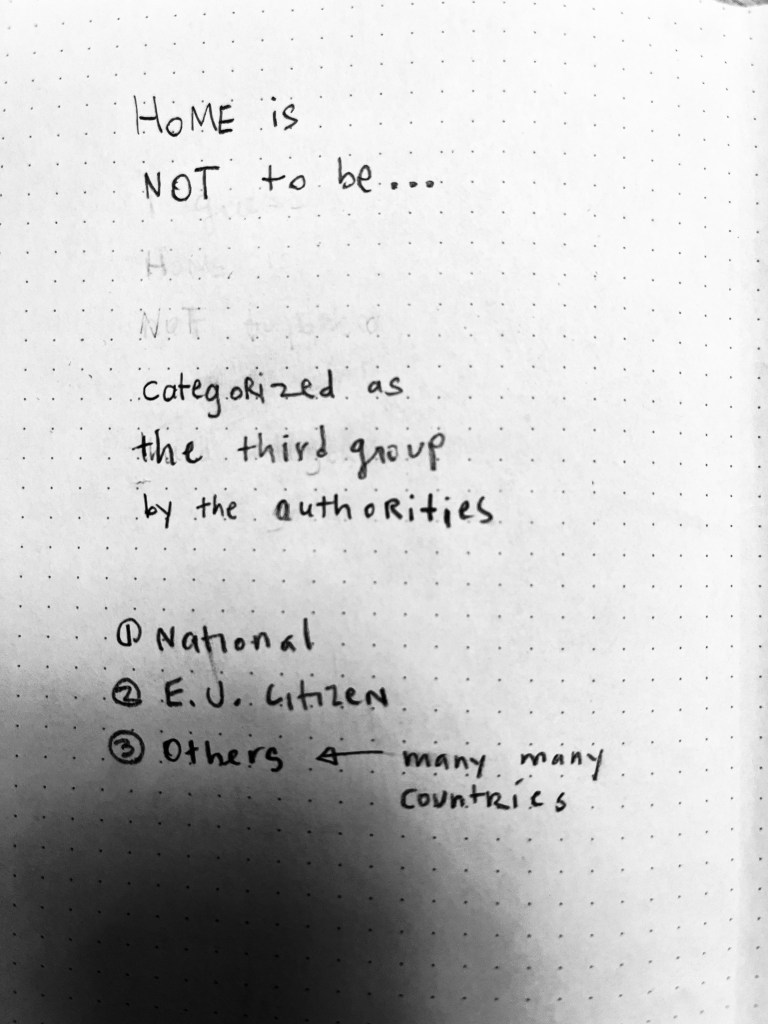 HOME is
NOT to be...
categorized as
the third group
by the authorities
① National
② E.U. Citizen
③ Others ← many many
countries